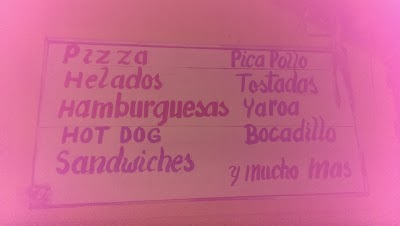 Pizza
Helados
Hamburguesas
HOT DOG
Sandwiches
Pica Pollo
Tostadas
Yaroa
Bocadillo
y mucho mas